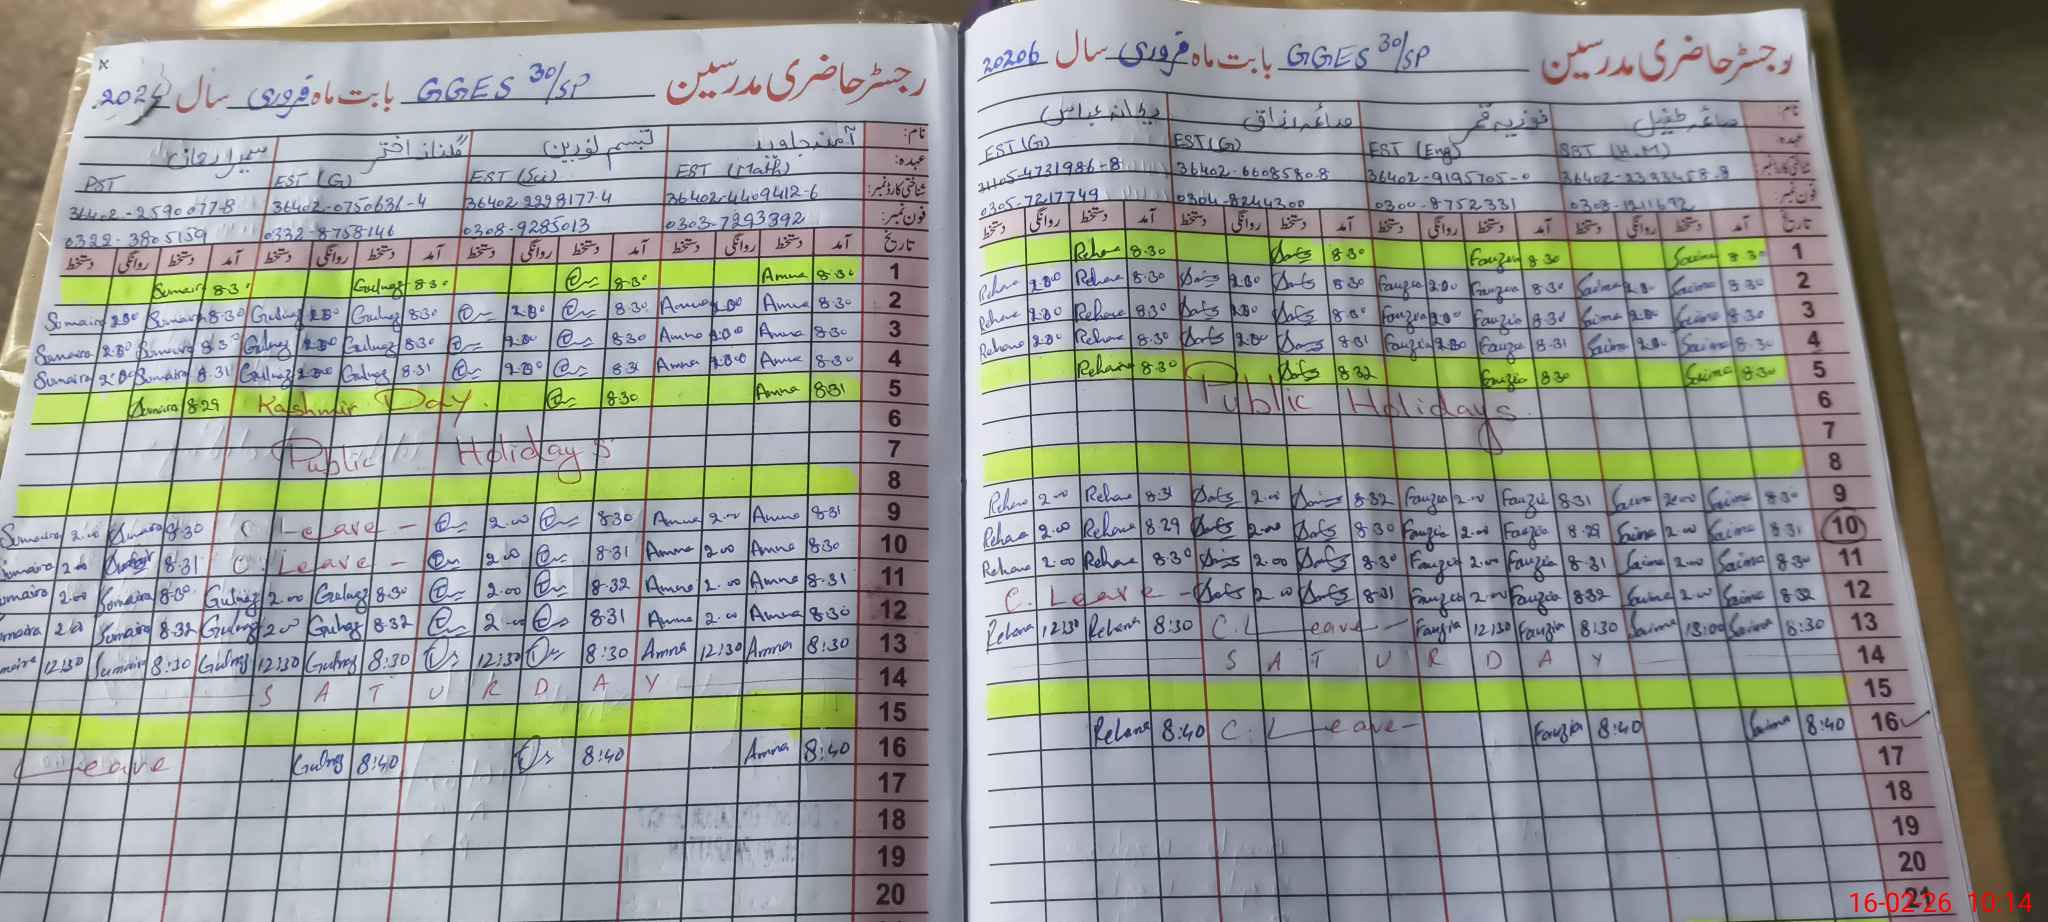 رجسٹر حاضری مدرسین GGES 30/SP بابت ماہ فروری سال 20206
نام: صائمہ طفیل فوزیہ قمر صائمہ رزاق ریحانہ عباس
عہدہ: SST (H.M) EST (Eng) EST (G) EST (G)
شناختی کارڈ نمبر: 36402-9195705-0 36402-6608580-8 31105-4731986-8
فون نمبر: 0300-8752331 0304-8244300 0305-7217749
تاریخ آمد دستخط روانگی دستخط آمد دستخط روانگی دستخط آمد دستخط روانگی دستخط آمد دستخط روانگی دستخط
1 8.30 Saima 8.30 Fauzia 8.30 8.30 Rehana
2 8.30 Saima 2.00 Saima 8.30 Fauzia 2.00 Fauzia 8.30 2.00 8.30 Rehana 2.00 Rehana
3 8.30 Saima 2.00 Saima 8.30 Fauzia 2.00 Fauzia 8.30 2.00 8.30 Rehana 2.00 Rehana
4 8.30 Saima 2.00 Saima 8.31 Fauzia 2.00 Fauzia 8.31 2.00 8.30 Rehana 2.00 Rehana
5 8.30 Saima 8.30 Fauzia 8.32 8.30 Rehana
6 Public Holidays
7
8
9 8.30 Saima 2.00 Saima 8.31 Fauzia 2.00 Fauzia 8.32 2.00 8.31 Rehana 2.00 Rehana
10 8.31 Saima 2.00 Saima 8.29 Fauzia 2.00 Fauzia 8.30 2.00 8.29 Rehana 2.00 Rehana
11 8.30 Saima 2.00 Saima 8.31 Fauzia 2.00 Fauzia 8.30 2.00 8.30 Rehana 2.00 Rehana
12 8.32 Saima 2.00 Saima 8.32 Fauzia 2.00 Fauzia 8.31 2.00 C. Leave -
13 8:30 Saima 13:00 Saima 8:30 Fauzia 12:30 Fauzia C. Leave - 8:30 Rehana 12:30 Rehana
14 SATURDAY
15
16 8:40 Saima 8:40 Fauzia C. Leave - 8:40 Rehana
17
18
19
20
21
رجسٹر حاضری مدرسین GGES 30/SP بابت ماہ فروری سال 2026
نام: آمنہ جاوید تبسم نورین گلناز اختر سمیرا رمضان
عہدہ: EST (Math) EST (Sci) EST (G) PST
شناختی کارڈ نمبر: 36402-4409412-6 36402-2298177-4 36402-0750631-4 36402-2590077-8
فون نمبر: 0303-7293392 0308-9285013 0332-8758146 0322-3805159
تاریخ آمد دستخط روانگی دستخط آمد دستخط روانگی دستخط آمد دستخط روانگی دستخط آمد دستخط روانگی دستخط
1 8.30 Amna 8.30 8.30 Gulnaz 8.30 Sumaira
2 8.30 Amna 2.00 Amna 8.30 2.00 8.30 Gulnaz 2.00 Gulnaz 8.30 Sumaira 2.00 Sumaira
3 8.30 Amna 2.00 Amna 8.30 2.00 8.30 Gulnaz 2.00 Gulnaz 8.30 Sumaira 2.00 Sumaira
4 8.30 Amna 2.00 Amna 8.31 2.00 8.31 Gulnaz 2.00 Gulnaz 8.31 Sumaira 2.00 Sumaira
5 8.31 Amna 8.30 Kashmir Day. 8.29 Sumaira
6
7 Public Holidays
8
9 8.31 Amna 2.00 Amna 8.30 2.00 C. Leave - 8.30 Sumaira 2.00 Sumaira
10 8.30 Amna 2.00 Amna 8.31 2.00 C. Leave - 8.31 2.00 Sumaira
11 8.31 Amna 2.00 Amna 8.32 2.00 8.30 Gulnaz 2.00 Gulnaz 8.30 Sumaira 2.00 Sumaira
12 8.30 Amna 2.00 Amna 8.31 2.00 8.32 Gulnaz 2.00 Gulnaz 8.32 Sumaira 2.00
13 8:30 Amna 12:30 Amna 8:30 12:30 8:30 Gulnaz 12:30 Gulnaz 8:30 Sumaira 12:30
14 SATURDAY
15
16 8:40 Amna 8:40 8:40 Gulnaz Leave
17
18
19
20
16-02-26 10:14